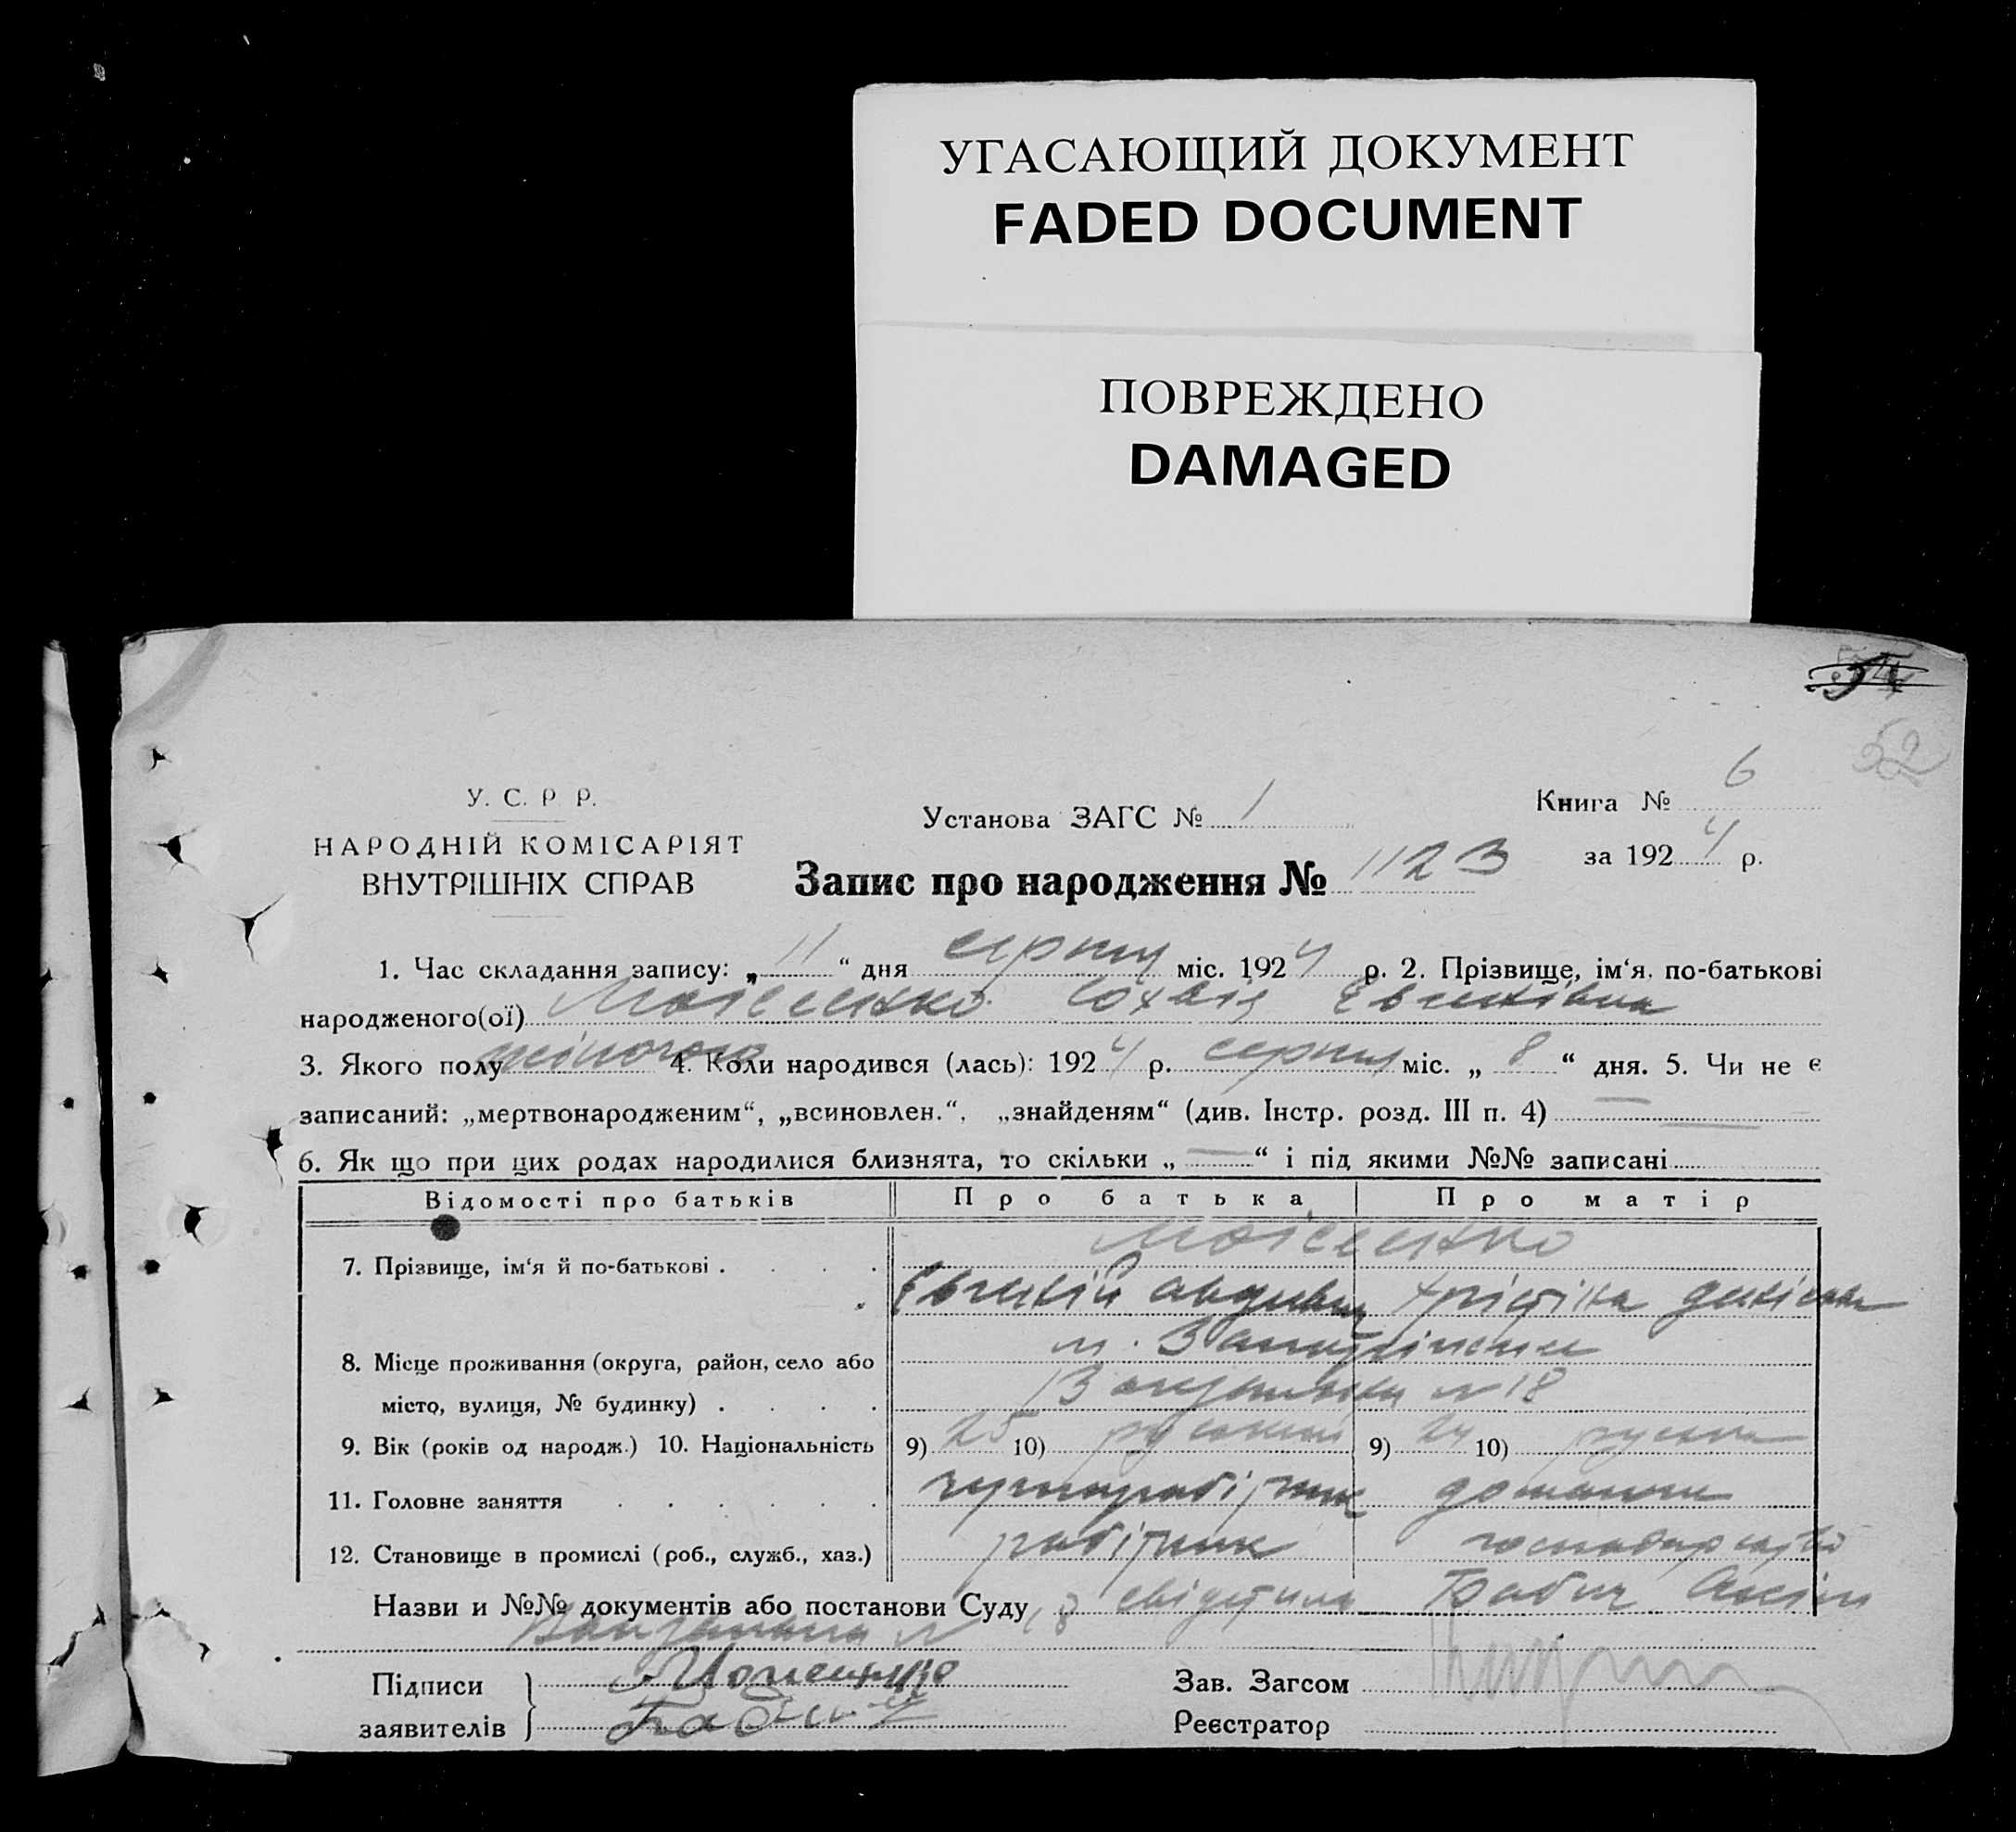 УГАСАЮЩИЙ ДОКУМЕНТ
FADED DOCUMENT
ПОВРЕЖДЕНО
DAMAGED
54
52
У. С. Р Р.
НАРОДНІЙ КОМІСАРІЯТ
ВНУТРІШНІХ СПРАВ
Установа ЗАГС № 1
Книга № 6
за 1924 р.
Запис про народження № 1123
1. Час складання запису: „ 11 “ дня серпня міс. 1924 р. 2. Прізвище, ім‘я, по-батькові
народженого(ої) Моісеенко Евгенівна
3. Якого полу жіночого 4. Коли народився (лась): 1924 р. серпня міс. „ 8 “ дня. 5. Чи не є
записаний: „мертвонародженим“, „всиновлен.“, „знайденям“ (див. Інстр. розд. III п. 4)
6. Як що при цих родах народилися близнята, то скільки „ — “ і під якими №№ записані
Відомості про батьків Про батька Про матір
Моісеенко
7. Прізвище, ім‘я й по-батькові .
Евгеній Хрістіна
м.
8. Місце проживання (округа, район, село або
місто, вулиця, № будинку) . № 18
9. Вік (років од народж.) 10. Національність 9) 25 10) руський 9) 24 10) руська
11. Головне заняття чорноробітник домашнє
12. Становище в промислі (роб., служб., хаз.) робітник господарство
Назви и №№ документів або постанови Суду
Підписи
заявителів
Зав. Загсом
Реєстратор